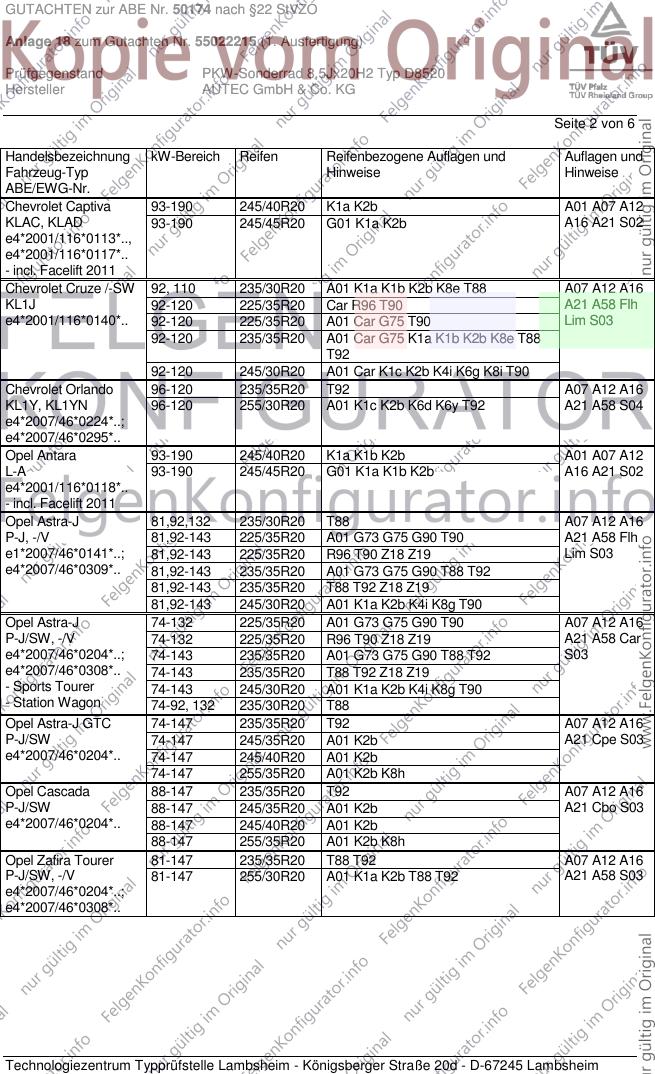 GUTACHTEN zur ABE Nr. 50174 nach §22 StVZO
Anlage 18 zum Gutachten Nr. 55022215 (1. Ausfertigung)
Kopie vom Original
Prüfgegenstand PKW-Sonderrad 8,5Jx20H2 Typ D8520
Hersteller AUTEC GmbH & Co. KG
TÜV
TÜV Pfalz
TÜV Rheinland Group
Seite 2 von 6
Handelsbezeichnung kW-Bereich Reifen Reifenbezogene Auflagen und Auflagen und
Fahrzeug-Typ Hinweise Hinweise
ABE/EWG-Nr.
Chevrolet Captiva 93-190 245/40R20 K1a K2b A01 A07 A12
KLAC, KLAD 93-190 245/45R20 G01 K1a K2b A16 A21 S02
e4*2001/116*0113*..,
e4*2001/116*0117*..
- incl. Facelift 2011
Chevrolet Cruze /-SW 92, 110 235/30R20 A01 K1a K1b K2b K8e T88 A07 A12 A16
KL1J 92-120 225/35R20 Car R96 T90 A21 A58 Flh
e4*2001/116*0140*.. 92-120 225/35R20 A01 Car G75 T90 Lim S03
92-120 235/35R20 A01 Car G75 K1a K1b K2b K8e T88
T92
92-120 245/30R20 A01 Car K1c K2b K4i K6g K8i T90
Chevrolet Orlando 96-120 235/35R20 T92 A07 A12 A16
KL1Y, KL1YN 96-120 255/30R20 A01 K1c K2b K6d K6y T92 A21 A58 S04
e4*2007/46*0224*..;
e4*2007/46*0295*..
Opel Antara 93-190 245/40R20 K1a K1b K2b A01 A07 A12
L-A 93-190 245/45R20 G01 K1a K1b K2b A16 A21 S02
e4*2001/116*0118*..
- incl. Facelift 2011
Opel Astra-J 81,92,132 235/30R20 T88 A07 A12 A16
P-J, -/V 81,92-143 225/35R20 A01 G73 G75 G90 T90 A21 A58 Flh
e1*2007/46*0141*..; 81,92-143 225/35R20 R96 T90 Z18 Z19 Lim S03
e4*2007/46*0309*.. 81,92-143 235/35R20 A01 G73 G75 G90 T88 T92
81,92-143 235/35R20 T88 T92 Z18 Z19
81,92-143 245/30R20 A01 K1a K2b K4i K8g T90
Opel Astra-J 74-132 225/35R20 A01 G73 G75 G90 T90 A07 A12 A16
P-J/SW, -/V 74-132 225/35R20 R96 T90 Z18 Z19 A21 A58 Car
e4*2007/46*0204*..; 74-143 235/35R20 A01 G73 G75 G90 T88 T92 S03
e4*2007/46*0308*.. 74-143 235/35R20 T88 T92 Z18 Z19
- Sports Tourer 74-143 245/30R20 A01 K1a K2b K4i K8g T90
- Station Wagon 74-92, 132 235/30R20 T88
Opel Astra-J GTC 74-147 235/35R20 T92 A07 A12 A16
P-J/SW 74-147 245/35R20 A01 K2b A21 Cpe S03
e4*2007/46*0204*.. 74-147 245/40R20 A01 K2b
74-147 255/35R20 A01 K2b K8h
Opel Cascada 88-147 235/35R20 T92 A07 A12 A16
P-J/SW 88-147 245/35R20 A01 K2b A21 Cbo S03
e4*2007/46*0204*.. 88-147 245/40R20 A01 K2b
88-147 255/35R20 A01 K2b K8h
Opel Zafira Tourer 81-147 235/35R20 T88 T92 A07 A12 A16
P-J/SW, -/V 81-147 255/30R20 A01 K1a K2b T88 T92 A21 A58 S03
e4*2007/46*0204*..;
e4*2007/46*0308*..
FELGEN
KONFIGURATOR
FelgenKonfigurator.info
nur gültig im Original
www.FelgenKonfigurator.info
Technologiezentrum Typprüfstelle Lambsheim - Königsberger Straße 20d - D-67245 Lambsheim